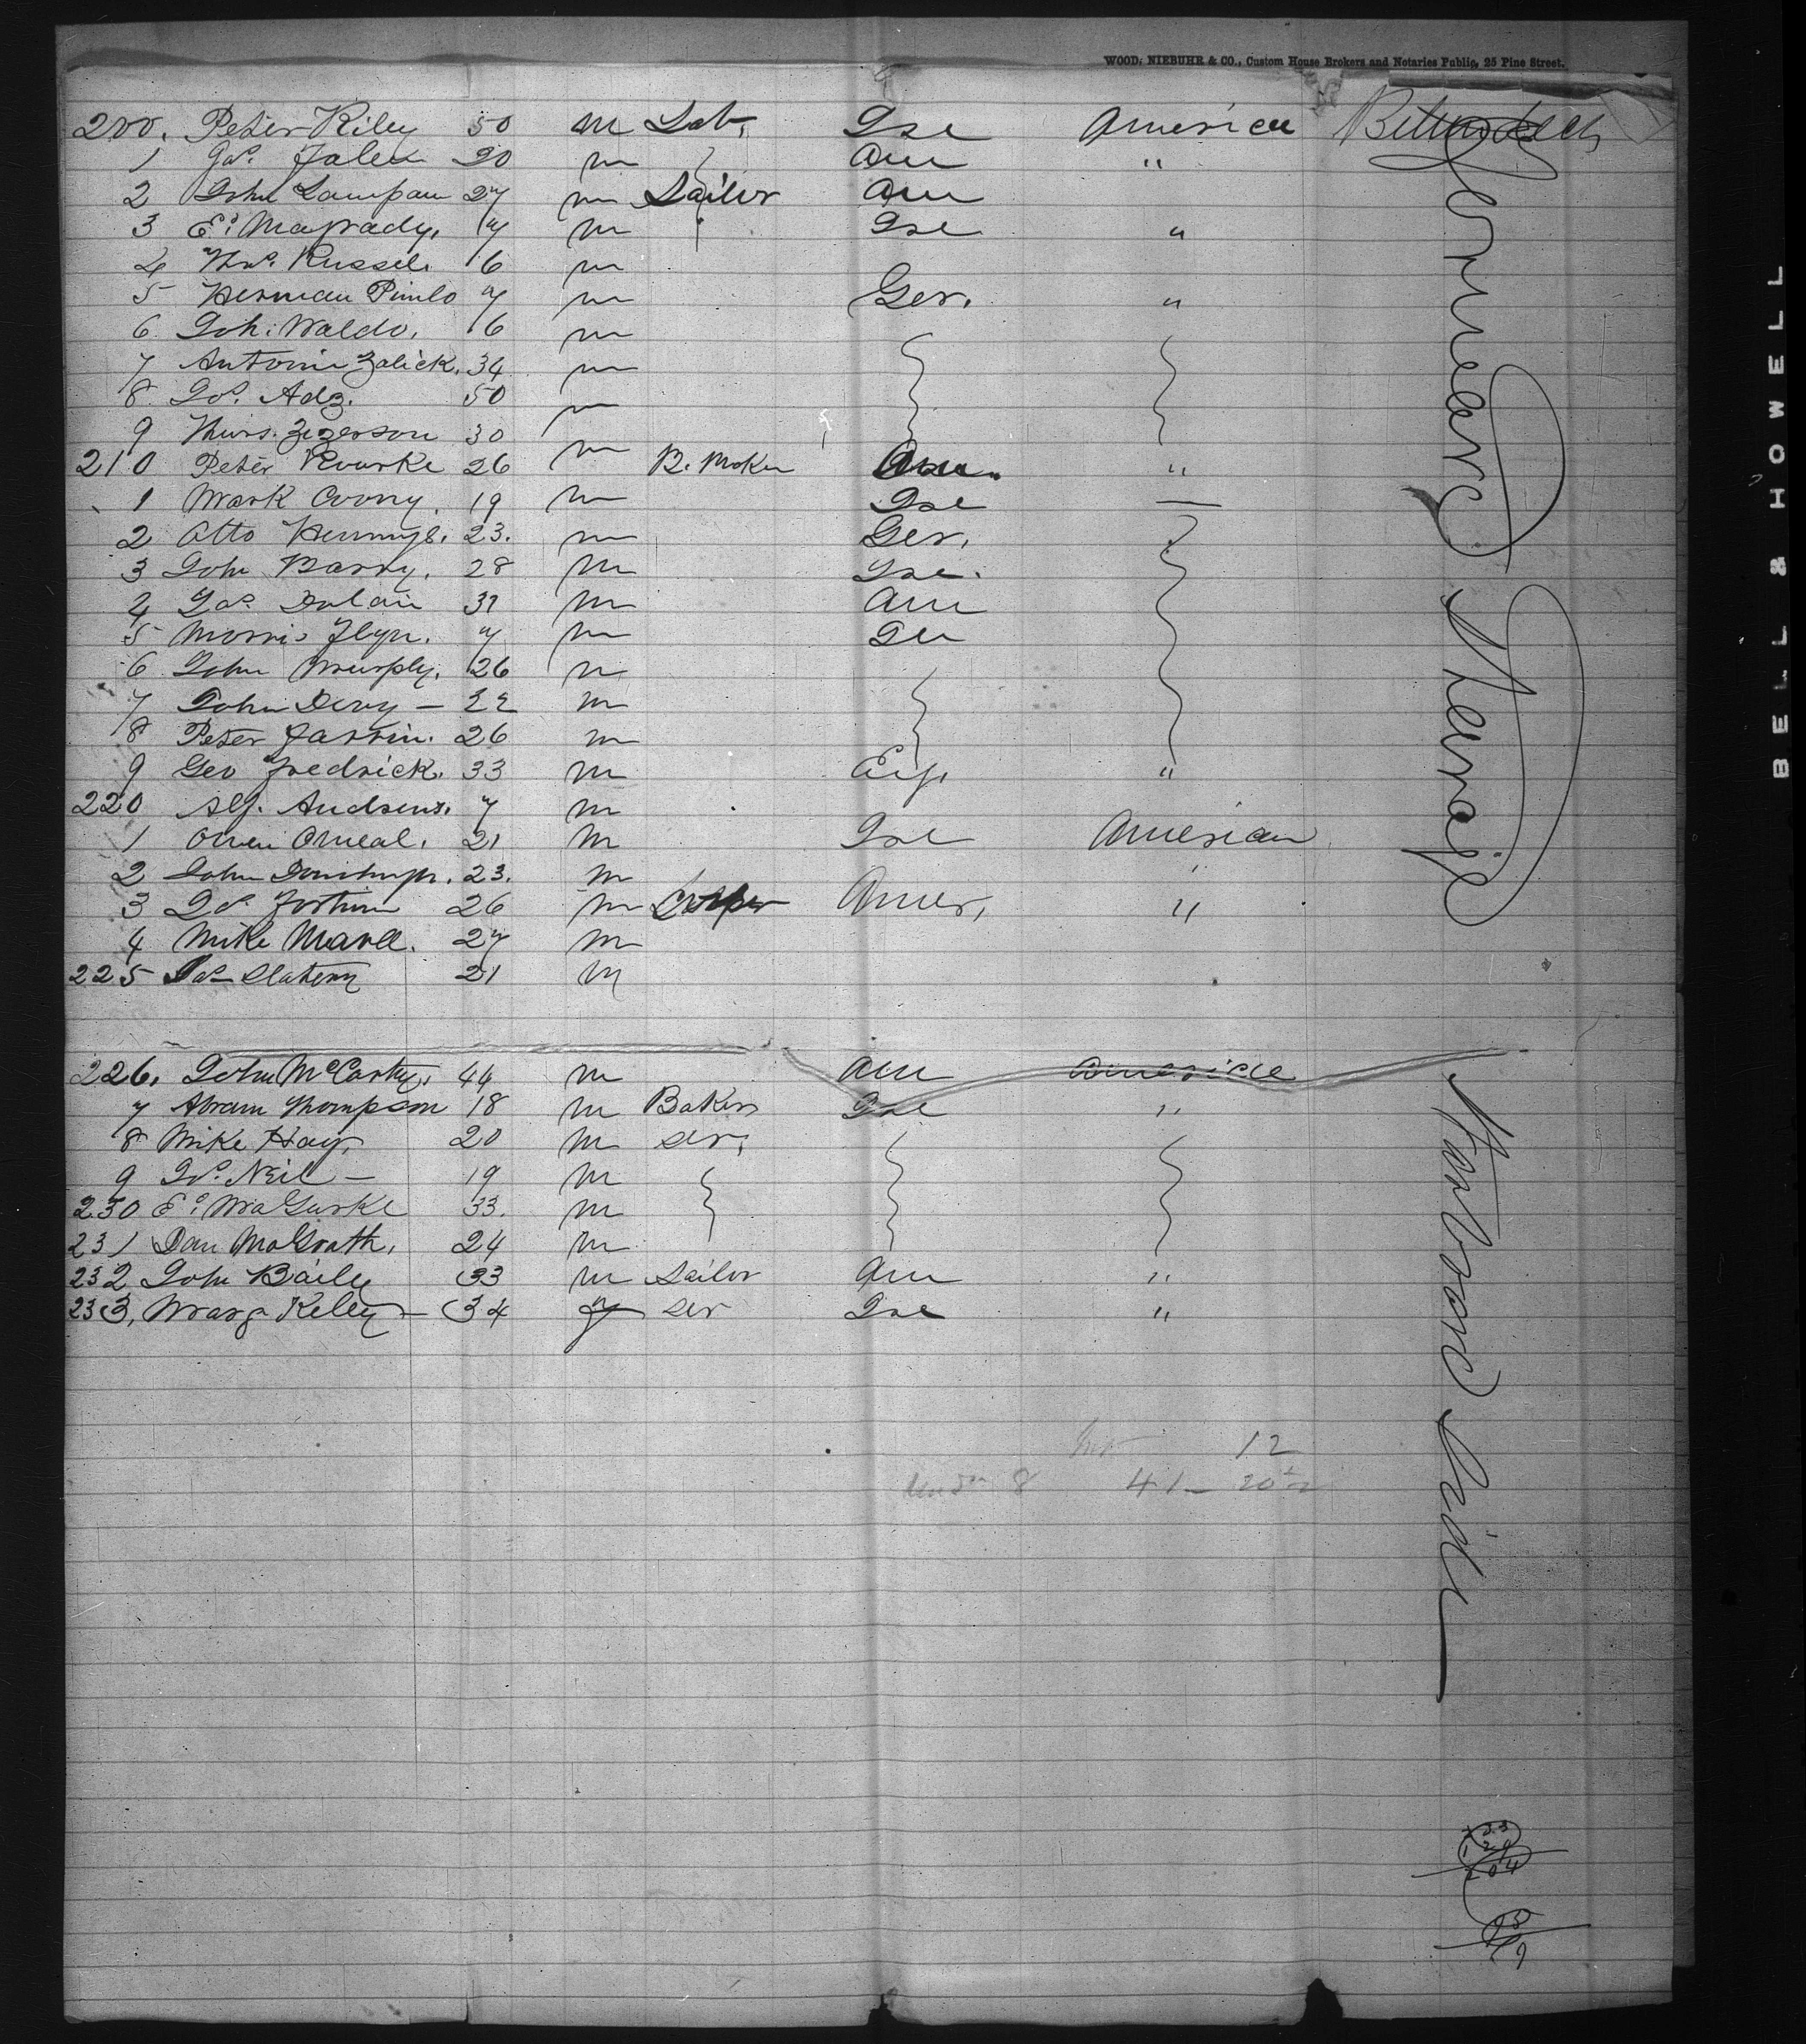 WOOD, NIEBUHR & CO., Custom House Brokers and Notaries Public, 25 Pine Street.
200. Peter Riley 50 m Lab, Ire America
1 Jas. Foley 20 m Am "
2 John Lampau 27 m Sailor Am
3 Ed. Magrady, 7 m Ire "
4 Thos. Russell. 6 m
5 Herman Pimlo 7 m Ger. "
6 Joh: Waldo, 6 m
7 Antonin Zalick, 34 m
8 Jos. Adz. 50 m
9 Thurs. Zigerson 30 m
210 Peter Rourke 26 B. Maker Am. "
1 Mark Coony. 19 m Ire —
2 Otto 23. m Ger,
3 John Barry. 28 m Ire.
4 Jas. Dolan 31 m Am
5 Morris Flyn. 7 m Ire
6 John Murphy. 26 m
7 John Devy — 22 m
8 Peter Farrin. 26 m
9 Geo Fredrick. 33 m "
220 Alf. Andrews. 7 m
1 Owen Oneal. 21 m Ire American
2 John 23. m "
3 26 m Cooper Amer, "
4 Mike 27 m
225 Jas Slattery 21 m
226. John McCarthy, 44 m Am America
7 Abram Thompson 18 m Baker Ire "
8 Mike Hays 20 m ser,
9 Jos. Neil — 19 m
230 Ed. MaGurke 33. m
231 Dan MaGrath, 24 m
232 John Baily 33 m Sailor Am "
233, Marg Kelly — 34 f ser Ire "
Forward Steerage
Forward Side
12
8 41 — 20
BELL & HOWELL